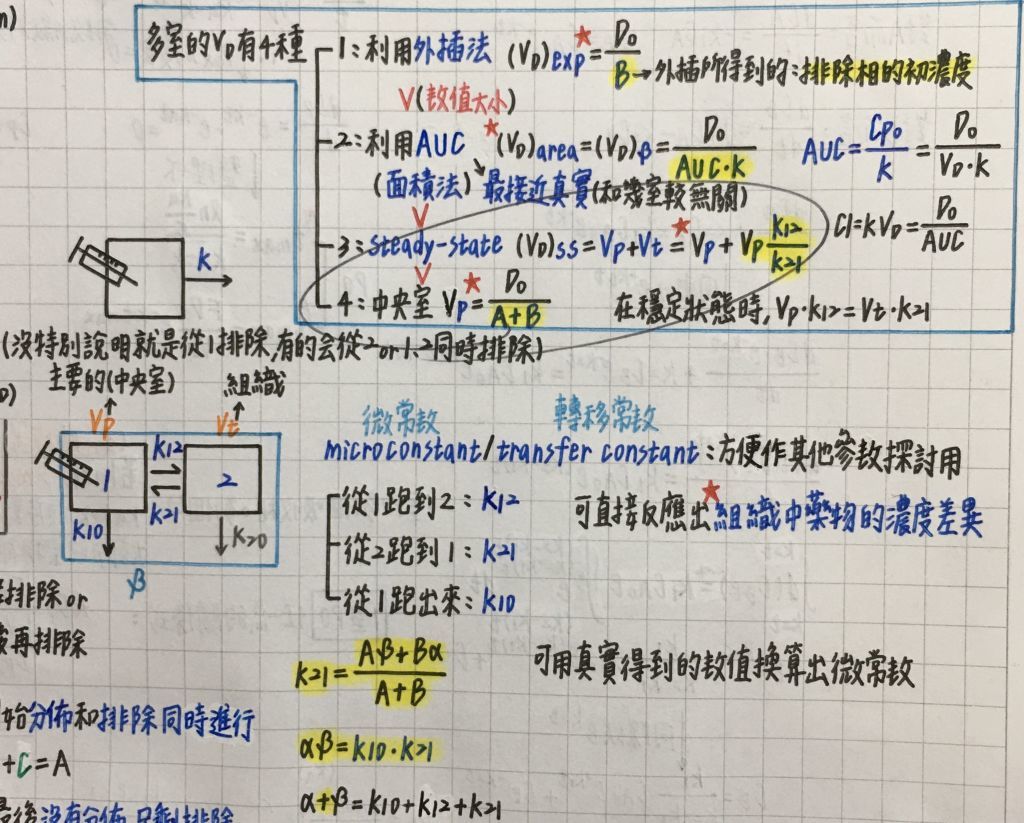 多室的VD有4種
1:利用外插法 (VD)exp★=D0/B→外插所得到的:排除相的初濃度
V(数值大小)
2:利用AUC ★(VD)area=(VD)β=D0/AUC·K
AUC=Cp0/K=D0/VD·K
(面積法)↘最接近真實(和幾室較無關)
V
3:steady-state (VD)ss=Vp+Vt★=Vp+Vp K12/K21
Cl=KVD=D0/AUC
V
4:中央室 Vp★=D0/A+B
在穩定狀態時,Vp·K12=Vt·K21
K
(沒特別說明就是從1排除,有的会從2 or 1、2同時排除)
主要的(中央室) 組織
Vp Vt
1 K12 2
K21
K10 K20
β
微常数 轉移常数
microconstant/transfer constant:方便作其他參数探討用
從1跑到2:K12
可直接反應出★組織中藥物的濃度差異
從2跑到1:K21
從1跑出來:K10
排除or
再排除
K21=Aβ+Bα/A+B
可用真實得到的数值換算出微常数
始分佈和排除同時進行
αβ=K10·K21
+C=A
α+β=K10+K12+K21
最後沒有分佈,只剩排除